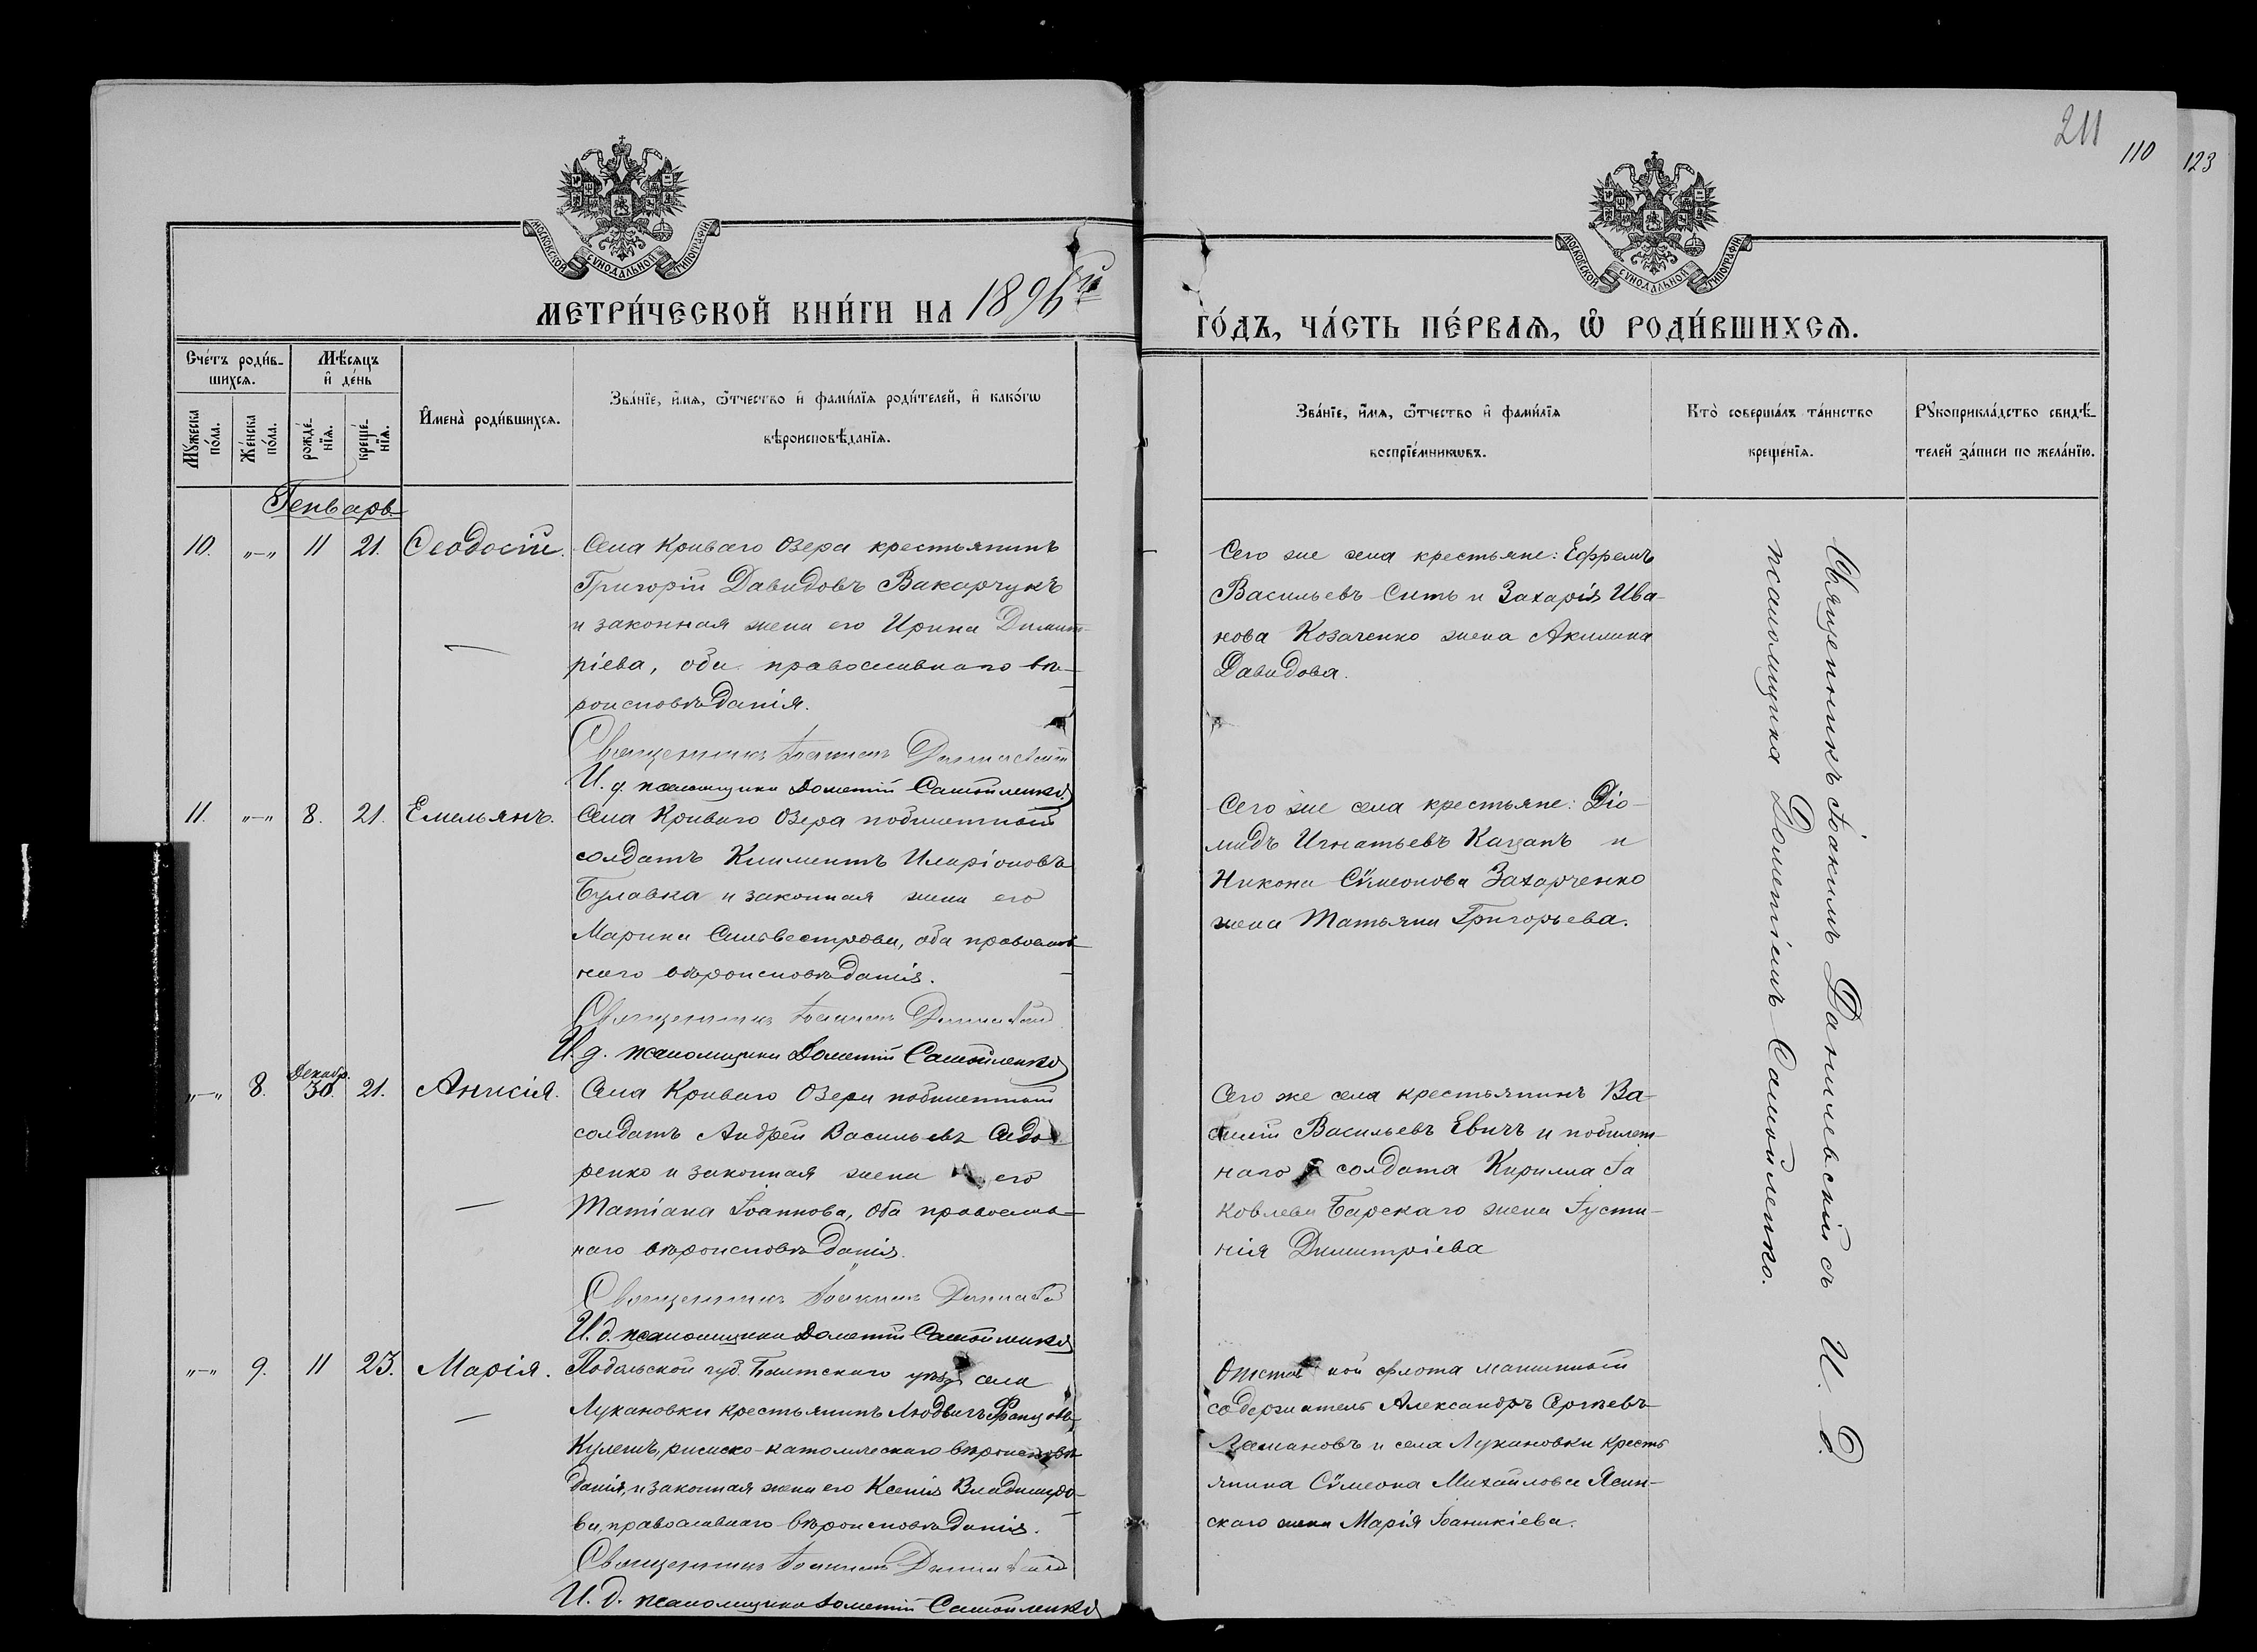 211
110
123
МОСКОВСКОЙ СѴНОДАЛЬНОЙ ТИПОГРАФІИ
МОСКОВСКОЙ СѴНОДАЛЬНОЙ ТИПОГРАФІИ
МЕТРИ́ЧЕСКОЙ КНИ́ГИ НА 1896й
ГО́ДЪ, ЧА́СТЬ ПЕ́РВАѦ, Ѡ҆ РОДИ́ВШИХСѦ.
Сче́тъ роди́в-
шихсѧ.
Мѣ́сѧцъ
и҆ де́нь
Мꙋ́жеска
по́ла.
Же́нска
по́ла.
рожде́-
нїѧ.
креще́-
нїѧ.
И҆мена̀ роди́вшихсѧ.
Зва́нїе, и҆́мѧ, ѻ҆́тчество и҆ фами́лїѧ роди́телей, и҆ како́гѡ
вѣроисповѣ́данїѧ.
Зва́нїе, и҆́мѧ, ѻ҆́тчество и҆ фами́лїѧ
воспрїе́мникѡвъ.
Кто̀ соверша́лъ та́инство
креще́нїѧ.
Рꙋкоприкла́дство свидѣ́-
телей за́писи по жела́нїю.
Генварь
10. „—„ 11 21. Ѳеодосій. Села Криваго Озера крестьянинъ
Григорій Давидовъ Вакарчукъ
и законная жена его Ирина Димит-
ріева, оба православнаго вѣ-
роисповѣданія.
Священникъ Іоакимъ Данилевскій
И. д. псаломщика Дометій Самойленко
Сего же села крестьяне: Ефремъ
Васильевъ Сить и Захарія Ива-
нова Козаченко жена Акилина
Давидова.
11. „—„ 8. 21. Емельянъ. Села Криваго Озера побилетный
солдатъ Климентъ Иларіоновъ
Булавка и законная жена его
Марина Сильвестрова, оба православ-
наго вѣроисповѣданія.
Священникъ Іоакимъ Данилевскій
И. д. псаломщика Дометій Самойленко
Сего же села крестьяне: Діо-
мидъ Игнатьевъ Кацанъ и
Никона Сѵмеонова Захарченко
жена Татьяна Григорьева.
„—„ 8. Декабр. 30. 21. Анисія. Села Криваго Озера побилетный
солдатъ Андрей Васильевъ Сидо
ренко и законная жена его
Татіана Іоаннова, оба православ-
наго вѣроисповѣданія.
Священникъ Іоакимъ Данилевскій
И. д. псаломщика Дометій Самойленко
Сего же села крестьянинъ Ва-
силій Васильевъ Евичъ и побилет-
наго солдата Кирилла Іа
ковлева Барскаго жена Іусти-
нія Димитріева
„—„ 9. 11 23. Марія. Подольской губ. Балтскаго уѣзда села
Лукановки крестьянинъ Людвигъ Францовъ
Кулешъ, римско-католическаго вѣроисповѣ
данія, и законная жена его Ксенія Владиміро-
ва, православнаго вѣроисповѣданія.
Священникъ Іоакимъ Данилевскій
И. д. псаломщика Дометій Самойленко
Отставной флота машинный
содержатель Александръ Сергѣевъ
и села Лукановки кресть
янина Сѵмеона Михайлова Ясин-
скаго жена Марія Іоаникіева.
Священникъ Іоакимъ Данилевскій съ И. д.
псаломщика Дометіемъ Самойленко.